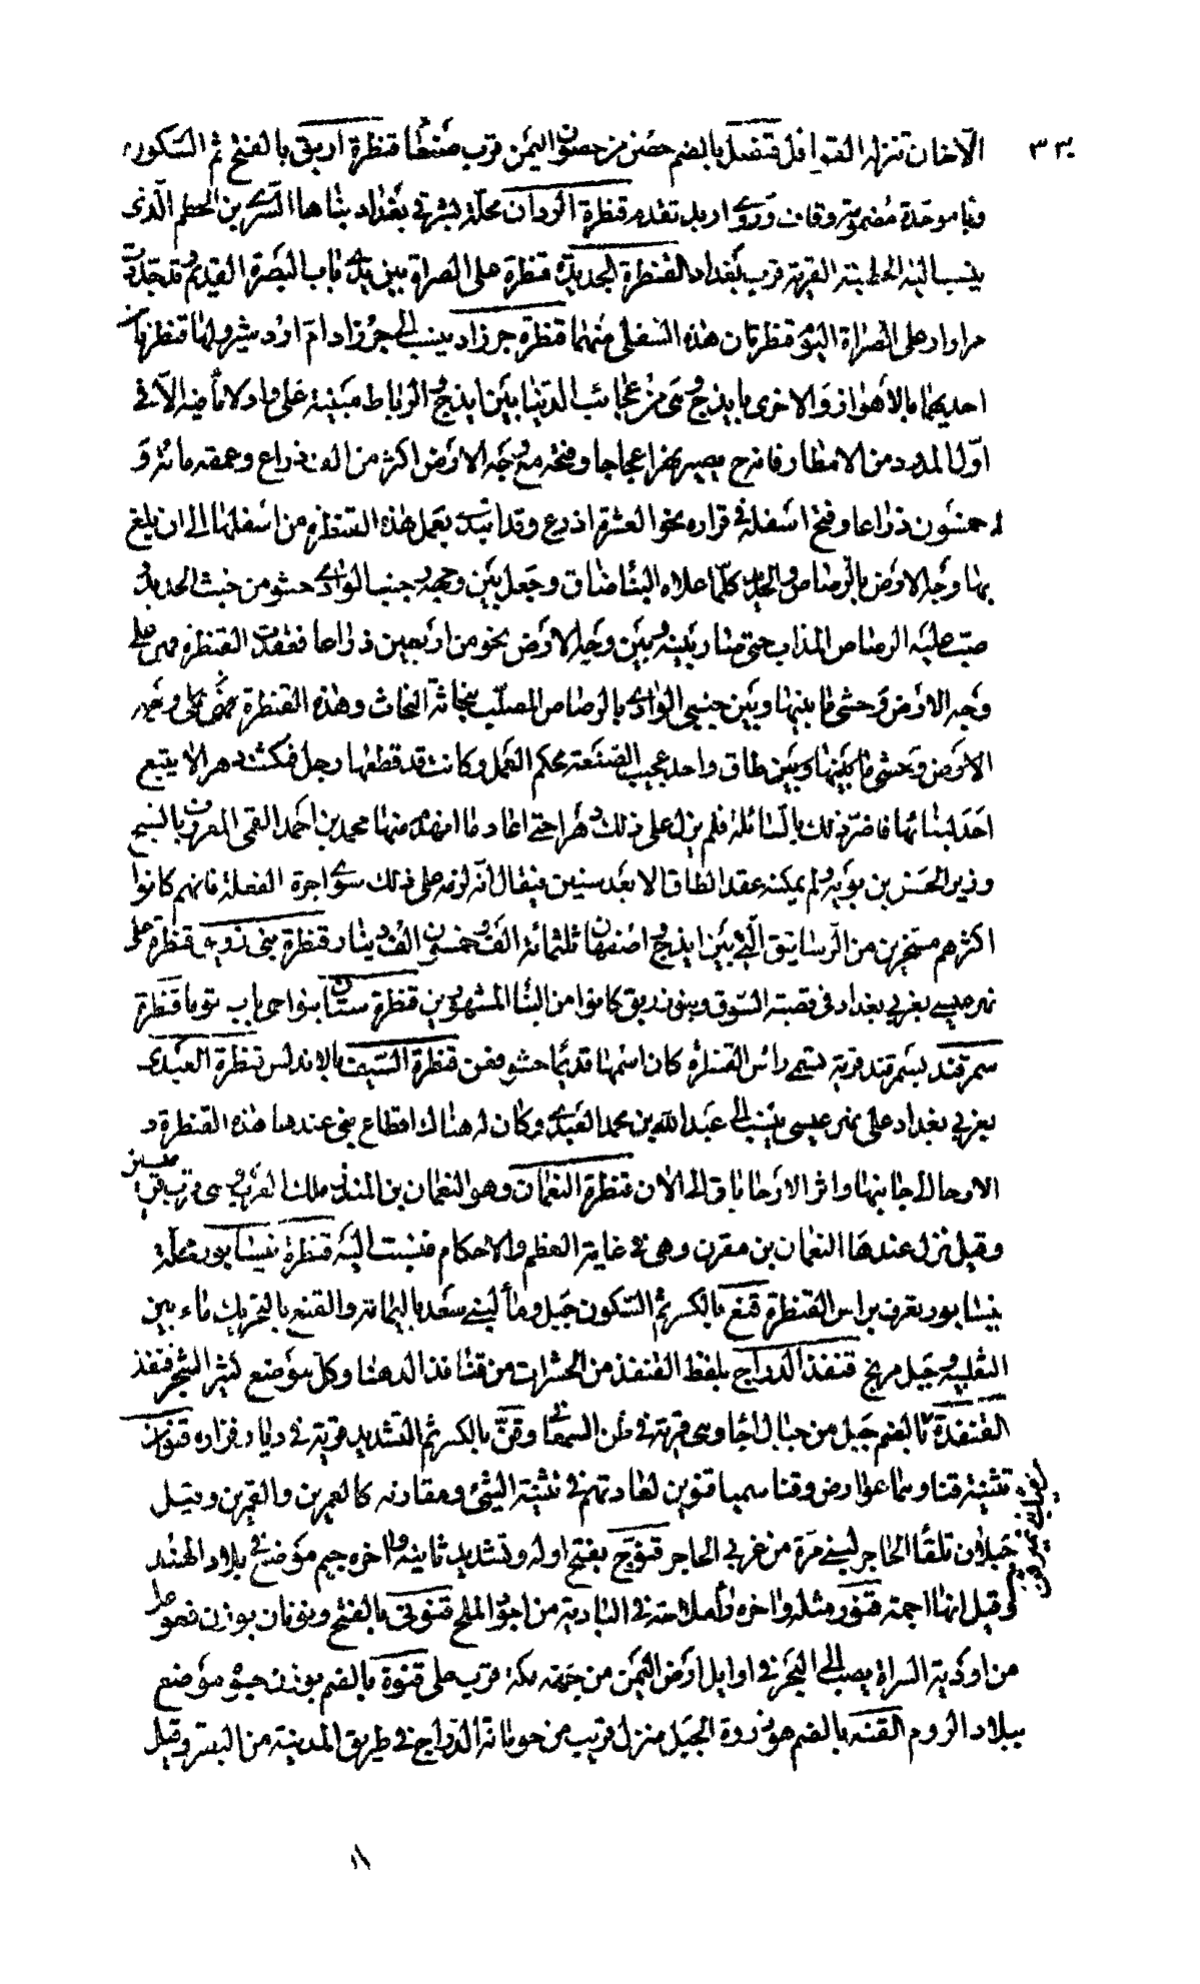 ٣٣٠
الآخان تنزله القوافل قنصل بالضم حصن من حصون اليمن قرب صنعا قنطرة اربق بالفتح ثم السكون
وبا موحدة مضمومة وقاف وروى اربك تقدم قنطرة البردان محلة بشرقي بغداد بناها السري بن الحطم الذي
ينسب اليه الحطمية القرية قرب بغداد القنطرة الجديدة قنطرة على الصراة بين يدي باب البصرة القديم قد جددت
مرارا وعلى الصراة اليوم قنطرتان هذه السفلى منهما قنطرة خرزاد ينسب الى خرزاد ام اردشير ولها قنطرتان
احديهما بالاهواز والاخرى بايذج وهى من عجايب الدنيا بين ايذج والرباط مبنية على واد لا ماء فيه الا في
اوان المدود من الامطار فانه ح يصير بحرا عجاجا وفتحه مع وجه الارض اكثر من الف ذراع وعمقه مائة و
خمسون ذراعا وفتح اسفله في قراره نحو العشرة اذرع وقد ابتدى بعمل هذه القنطرة من اسفلها الى ان بلغ
بها وجه الارض بالرصاص والحديد كلما علاه البنا ضاق وجعل بين وجهه وجنب الوادى حشو من خبث الحديد و
صب عليه الرصاص المذاب حتى صار بينه وبين وجه الارض نحو من اربعين ذراعا فعقدت القنطرة فهى على
وجه الارض وحشى ما بينها وبين جنبى الوادى بالرصاص المصلب بنحاتة النحاس وهذه القنطرة
الارض وحشى ما بينها وبين طاق واحد عجيب الصنعة محكم العمل وكانت قد قطعها رجل فمكثت دهرا لا يتسع
احد لبنائها فاضر ذلك بالسابلة فلم يزل على ذلك دهرا حتى اعاد ما انهدم منها محمد بن احمد القمى المعروف بالشيخ
وزير الحسن بن بويه ولم يمكنه عقد الطاق الا بعد سنين فيقال انه لزمه على ذلك سوى اجرة الفعلة فانهم كانوا
اكثرهم مسخرين من الرساتيق التى بين ايذج واصفهان ثلثمائة الف وخمسون الف دينار قنطرة بنى زريق قنطرة على
نهر عيسى بغربي بغداد في قصبة السوق وبنو زريق كانوا من البنا المشهورين قنطرة سنان بنواحى باب توما قنطرة
سمرقند بسمرقند قرية تسمى راس القنطرة كان اسمها قديما حشوفغن قنطرة السيف بالاندلس قنطرة العبدى
بغربي بغداد على نهر عيسى ينسب الى عبد الله بن محمد العبدى وكان له هناك اقطاع بنى عندها هذه القنطرة و
الارحا الى جانبها واثر الارحا باق الى الان قنطرة النعمان وهو النعمان بن المنذر ملك العرب وهى قرب
وقيل نزل عندها النعمان بن مقرن وهى في غاية العظم والاحكام فنسبت اليه قنطرة نيسابور محلة
بنيسابور يعرف براس القنطرة قنع بالكسر ثم السكون جبل وماء لبنى سعد باليمامة والقنع بالتحريك ماء بين
الثعلبية وجبل مربخ قنفذ الدراج بلفظ القنفذ من الحشرات من قنافذ الدهنا وكل موضع كثير الشجر قنفذ
القنفذة بالضم جبل من جبال اجا وهى قرية في وقن بالكسر ثم التشديد قرية في ديار فزاره قنوان
تثنية قنا وهما عوارض وقنا سميا قنوين لعادتهم في تثنية الشئ ومقارنه كالعمرين والقمرين وقيل
جبلان تلقا الحاجر لبنى مرة من غربي الحاجر قنوج بفتح اوله وتشديد ثانيه واخره جيم موضع في بلاد الهند
وقيل انها اجمة قنور مثله واخره راء ملاحة في البادية من اجود الملح قنونى بالفتح ونونان بوزن فعولى
من اودية السراة يصب الى البحر في اوايل ارض اليمن من جهة مكة قرب حلى قنوة بالضم بوزن حبوة موضع
ببلاد الروم القنه بالضم هو ذروة الجبل منزل قريب من حومانة الدراج في طريق المدينة من البصرة وقيل